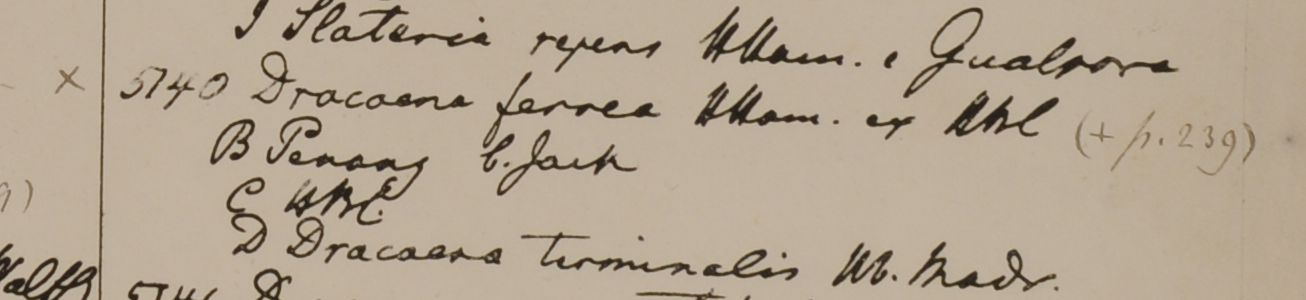 I Slateria repens HHam. e Gualpora
× 5140 Dracaena ferrea HHam. ex HBC (+ p. 239)
B Penang C. Jack
C HBC.
D Dracaena terminalis Hb. Madr.